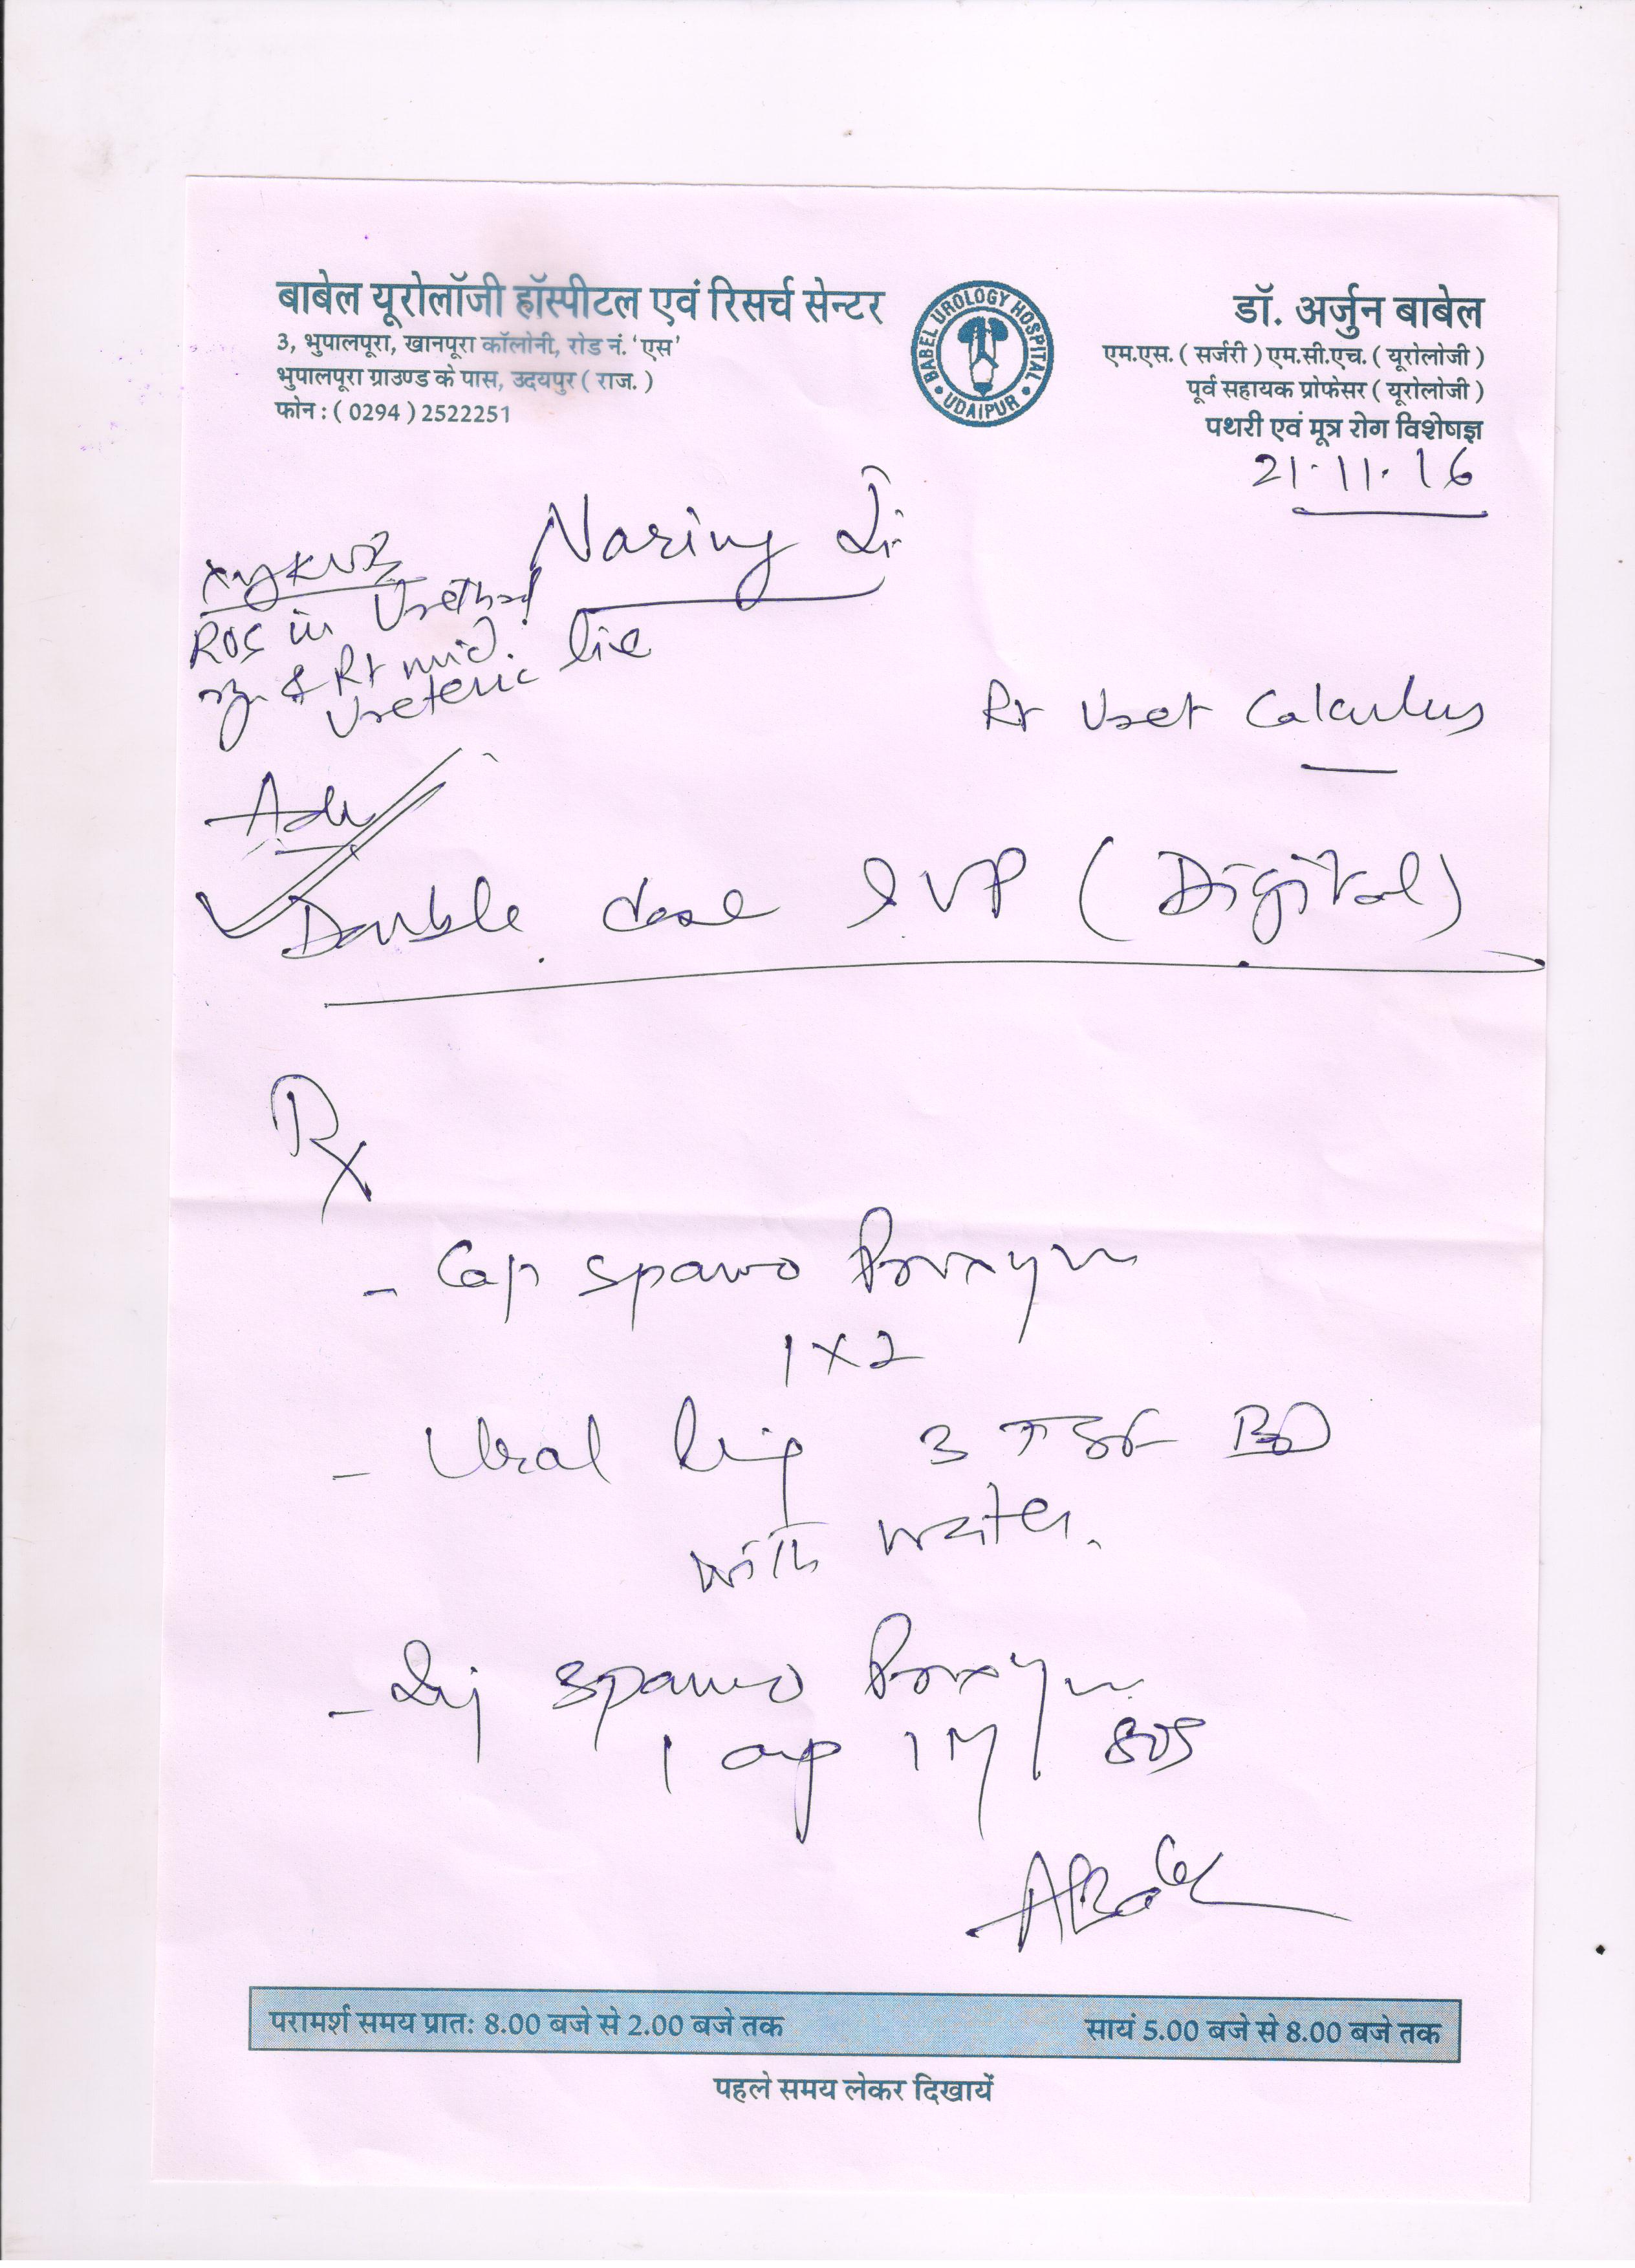 बाबेल यूरोलॉजी हॉस्पीटल एवं रिसर्च सेन्टर
3, भुपालपूरा, खानपूरा कॉलोनी, रोड नं. ‘एस’
भुपालपूरा ग्राउण्ड के पास, उदयपुर ( राज. )
फोन : ( 0294 ) 2522251
• BABEL UROLOGY HOSPITAL • UDAIPUR
डॉ. अर्जुन बाबेल
एम.एस. ( सर्जरी ) एम.सी.एच. ( यूरोलोजी )
पूर्व सहायक प्रोफेसर ( यूरोलोजी )
पथरी एवं मूत्र रोग विशेषज्ञ
21.11.16
ROS in
& Rt mid.
Ureteric line
Rt Uret Calculus
Adv
Double dose IVP (Digital)
Rx
- Cap Spasmo Proxyvon
1 x 2
- Ural 3 BD
with water.
- Inj Spasmo Proxyvon
1 amp IM SOS
ABabel
परामर्श समय प्रातः 8.00 बजे से 2.00 बजे तक
सायं 5.00 बजे से 8.00 बजे तक
पहले समय लेकर दिखायें